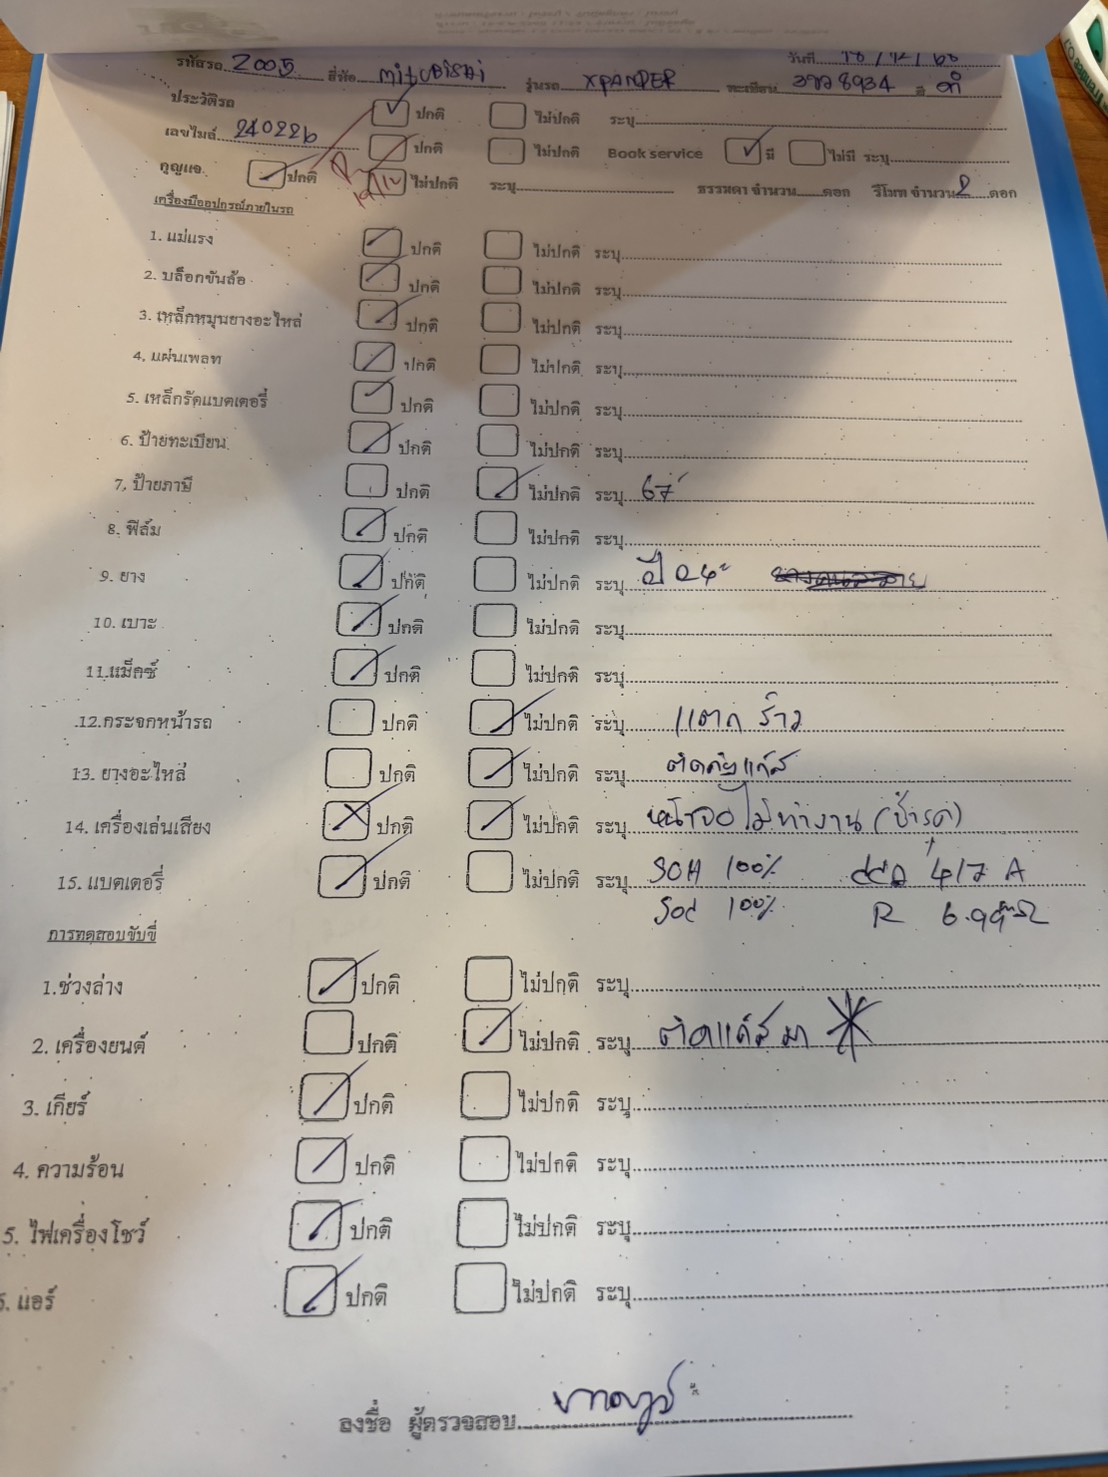 รหัสรถ 2005 ยี่ห้อ mitubishi รุ่นรถ XPANDER ทะเบียน 8934 สี ดำ วันที่ 18/12/68
ประวัติรถ ปกติ ไม่ปกติ ระบุ
เลขไมล์ 240226 ปกติ ไม่ปกติ Book service มี ไม่มี ระบุ
กุญแจ ปกติ ไม่ปกติ ระบุ ธรรมดา จำนวน ดอก รีโมท จำนวน 2 ดอก
19/12
เครื่องมืออุปกรณ์ภายในรถ
1. แม่แรง ปกติ ไม่ปกติ ระบุ
2. บล็อกขันล้อ ปกติ ไม่ปกติ ระบุ
3. เหล็กหมุนยางอะไหล่ ปกติ ไม่ปกติ ระบุ
4. แผ่นเพลท ปกติ ไม่ปกติ ระบุ
5. เหล็กรัดแบตเตอรี่ ปกติ ไม่ปกติ ระบุ
6. ป้ายทะเบียน ปกติ ไม่ปกติ ระบุ
7. ป้ายภาษี ปกติ ไม่ปกติ ระบุ 67
8. ฟิล์ม ปกติ ไม่ปกติ ระบุ
9. ยาง ปกติ ไม่ปกติ ระบุ ปี 24
10. เบาะ ปกติ ไม่ปกติ ระบุ
11.แม็คซ์ ปกติ ไม่ปกติ ระบุ
12.กระจกหน้ารถ ปกติ ไม่ปกติ ระบุ แตก ร้าว
13. ยางอะไหล่ ปกติ ไม่ปกติ ระบุ ติดถังแก๊ส
14. เครื่องเล่นเสียง ปกติ ไม่ปกติ ระบุ หน้าจอไม่ทำงาน (ชำรุด)
15. แบตเตอรี่ ปกติ ไม่ปกติ ระบุ SOH 100% CCA 417 A
SOC 100% R 6.99mΩ
การทดสอบขับขี่
1.ช่วงล่าง ปกติ ไม่ปกติ ระบุ
2. เครื่องยนต์ ปกติ ไม่ปกติ ระบุ ติดแก๊ส มา
3. เกียร์ ปกติ ไม่ปกติ ระบุ
4. ความร้อน ปกติ ไม่ปกติ ระบุ
5. ไฟเครื่องโชว์ ปกติ ไม่ปกติ ระบุ
6. แอร์ ปกติ ไม่ปกติ ระบุ
ลงชื่อ ผู้ตรวจสอบ